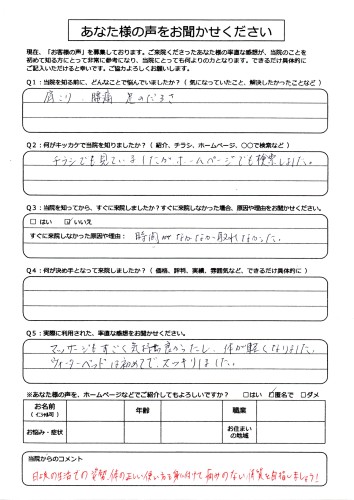 あなた様の声をお聞かせください
現在、「お客様の声」を募集しております。ご来院くださったあなた様の率直な感想が、当院のことを
初めて知る方にとって非常に参考になり、当院にとっても何よりの力となります。できるだけ具体的に
ご記入いただけると幸いです。ご協力よろしくお願いします。
Q1：当院を知る前に、どんなことで悩んでいましたか？（ 気になっていたこと、解決したかったことなど ）
肩こり 腰痛 足のだるさ
Q2：何がキッカケで当院を知りましたか？（ 紹介、チラシ、ホームページ、〇〇で検索など ）
チラシでも見ていましたがホームページでも検索しました。
Q3：当院を知ってから、すぐに来院しましたか？すぐに来院しなかった場合、原因や理由をお聞かせください。
□ はい ☑ いいえ
すぐに来院しなかった原因や理由： 時間がなかなか取れなかった。
Q4：何が決め手となって来院しましたか？（ 価格、評判、実績、雰囲気など、できるだけ具体的に ）
Q5：実際に利用された、率直な感想をお聞かせください。
マッサージもすごく気持良かったし、体が軽くなりました。
ウォーターベッドは初めてで、スッキリしました。
※あなた様の声を、ホームページなどでご紹介してもよろしいですか？ □はい ☑匿名で □ダメ
お名前
（イニシャル可）
年齢
職業
お悩み・症状
お住まい
の地域
当院からのコメント
日々の生活での姿勢、体の正しい使い方を身に付けて痛みのない体質を目指しましょう！